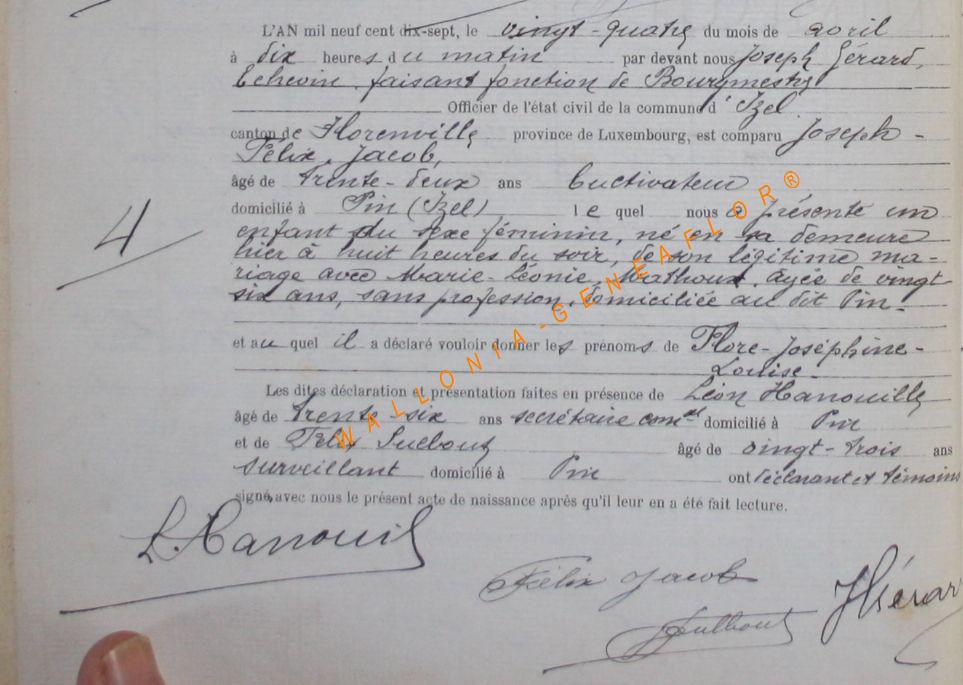 L'AN mil neuf cent dix-sept, le vingt-quatre du mois de avril
à dix heures du matin par devant nous Joseph Gérard,
Echevin faisant fonction de Bourgmestre
Officier de l'état civil de la commune d'Izel
canton de Florenville province de Luxembourg, est comparu Joseph-
Félix Jacob,
âgé de trente-deux ans Cultivateur
domicilié à Pin (Izel) le quel nous a présenté un
enfant du sexe féminin, né en sa demeure
hier à huit heures du soir, de son légitime ma-
riage avec Marie-Léonie Mathoux, âgée de vingt
six ans, sans profession, domiciliée au dit Pin-
et au quel il a déclaré vouloir donner les prénoms de Flore-Joséphine-
Louise-
Les dites déclaration et présentation faites en présence de Léon Hanouille
âgé de trente-six ans secrétaire comal domicilié à Pin
et de Félix âgé de vingt-trois ans
surveillant domicilié à Pin ont déclarant et témoins
signé, avec nous le présent acte de naissance après qu'il leur en a été fait lecture.
4
L. Hanouil
Félix Jacob
JGérar
WALLONIA-GENEAFLOR®